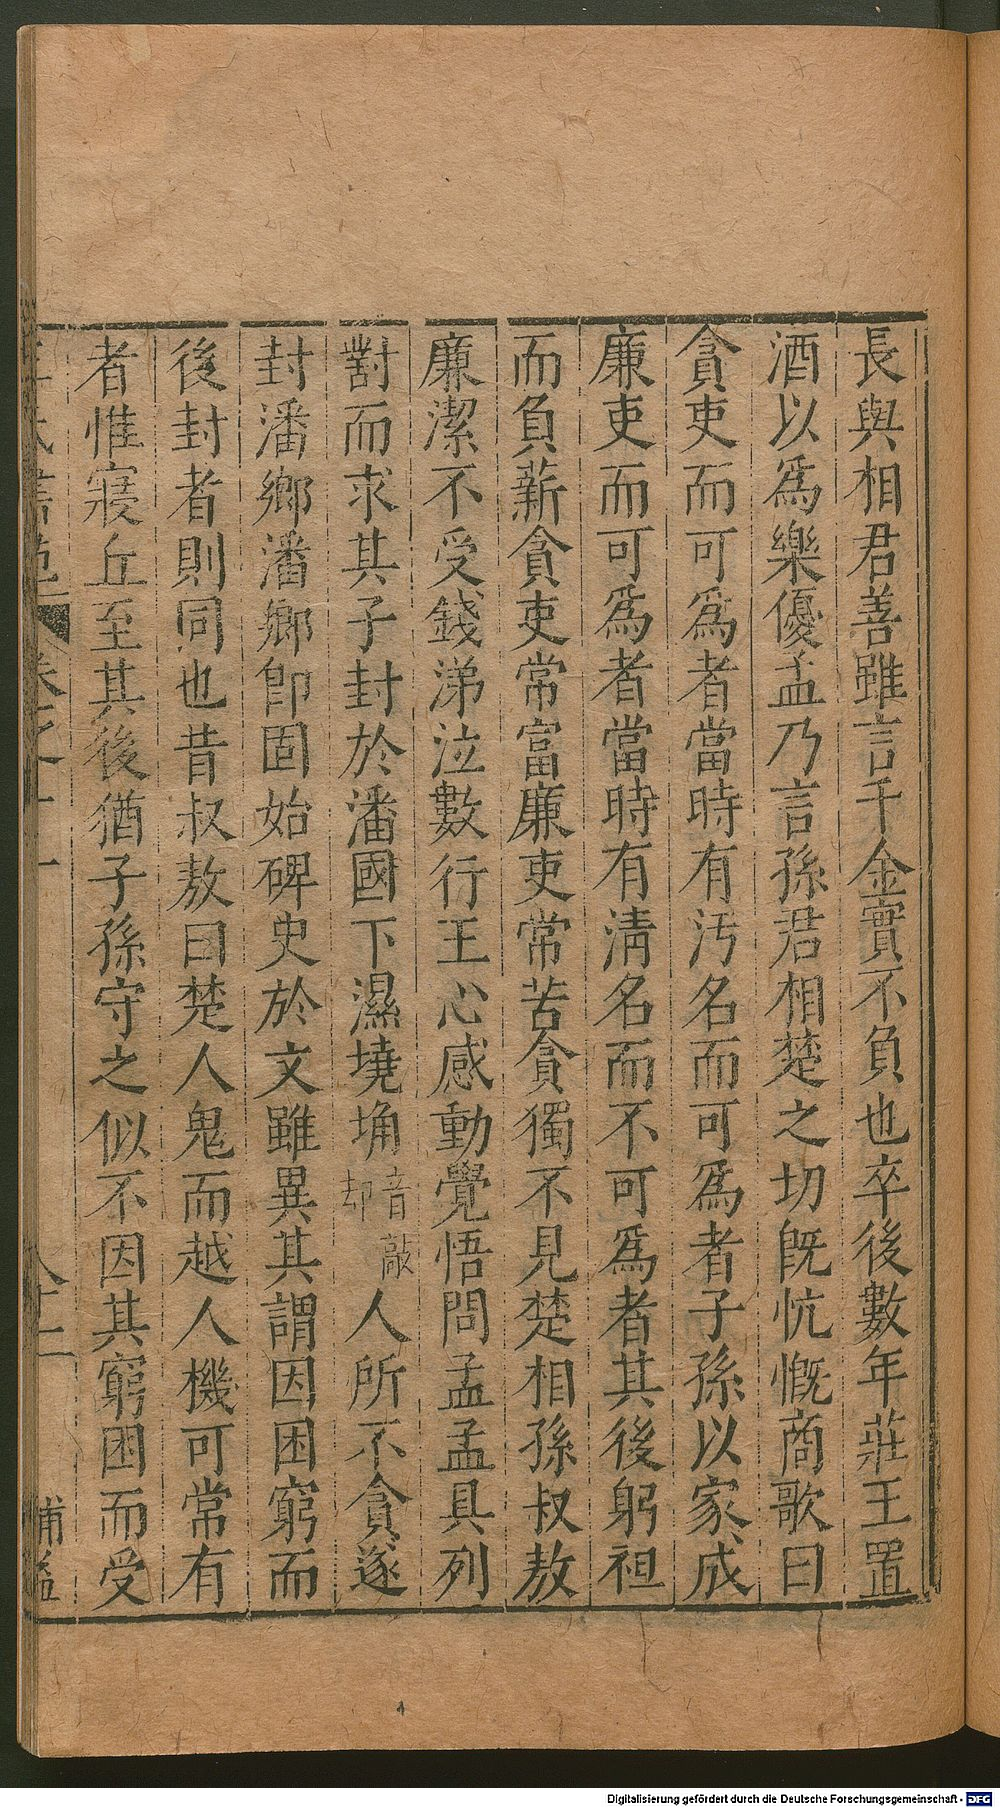 長與相君善雖言千金實不負也卒後數年莊王置
酒以爲樂優孟乃言孫君相楚之切旣忼慨商歌曰
貪吏而可爲者當時有汚名而可爲者子孫以家成
廉吏而可爲者當時有淸名而不可爲者其後躬袒
而負薪貪吏常富廉吏常苦貪獨不見楚相孫叔敖
廉潔不受錢涕泣數行王心感動覺悟問孟孟具列
對而求其子封於潘國下濕墝埆音敲
却人所不貪遂
封潘鄉潘鄉卽固始碑史於文雖異其謂因困窮而
後封者則同也昔叔敖曰楚人鬼而越人機可常有
者惟寢丘至其後猶子孫守之似不因其窮困而受
卷之十一
八十二
Digitalisierung gefördert durch die Deutsche Forschungsgemeinschaft - DFG